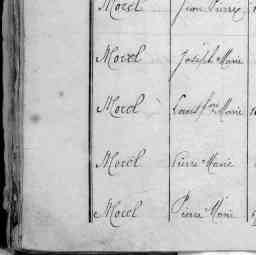 Morel Jean Pierre
Morel Joseph Marie
Morel Louis fois Marie
Morel Pierre Marie
Morel Pierre Marie